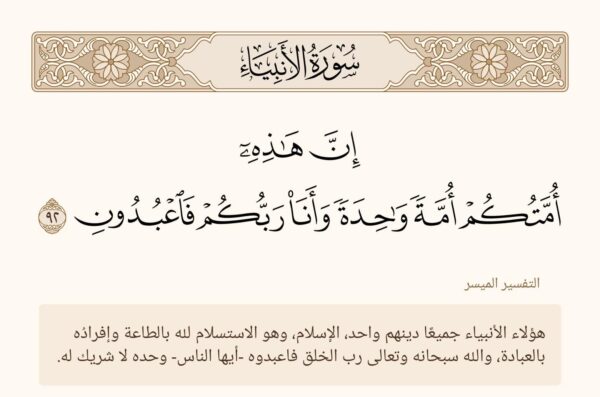 سُورَةُ الأَنبِيَاءِ
إِنَّ هَٰذِهِۦٓ
أُمَّتُكُمْ أُمَّةً وَٰحِدَةً وَأَنَا۠ رَبُّكُمْ فَٱعْبُدُونِ ٩٢
التفسير الميسر
هؤلاء الأنبياء جميعًا دينهم واحد، الإسلام، وهو الاستسلام لله بالطاعة وإفراده
بالعبادة، والله سبحانه وتعالى رب الخلق فاعبدوه -أيها الناس- وحده لا شريك له.